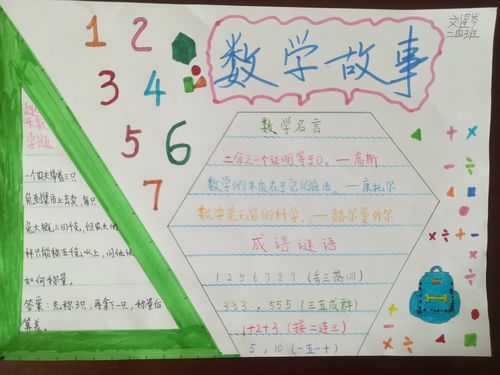 数学故事
二四班
1 2
3 4
5 6
7
趣味数学题
一个农夫带着三只
兔到集市上去卖,每只
兔大概三四千克,但农夫的
秤只能称五千克以上,问他该
如何称量。
答案:先称3只,再拿下一只,称量后
算差。
数学名言
二分之一个证明等于0。—高斯
数学的本质在于它的自由。—康托尔
数学是无穷的科学。—赫尔曼外尔
成语谜语
1 2 5 6 7 8 9 (丢三落四)
333,555 (三五成群)
1+2+3 (接二连三)
5,10 (一五一十)